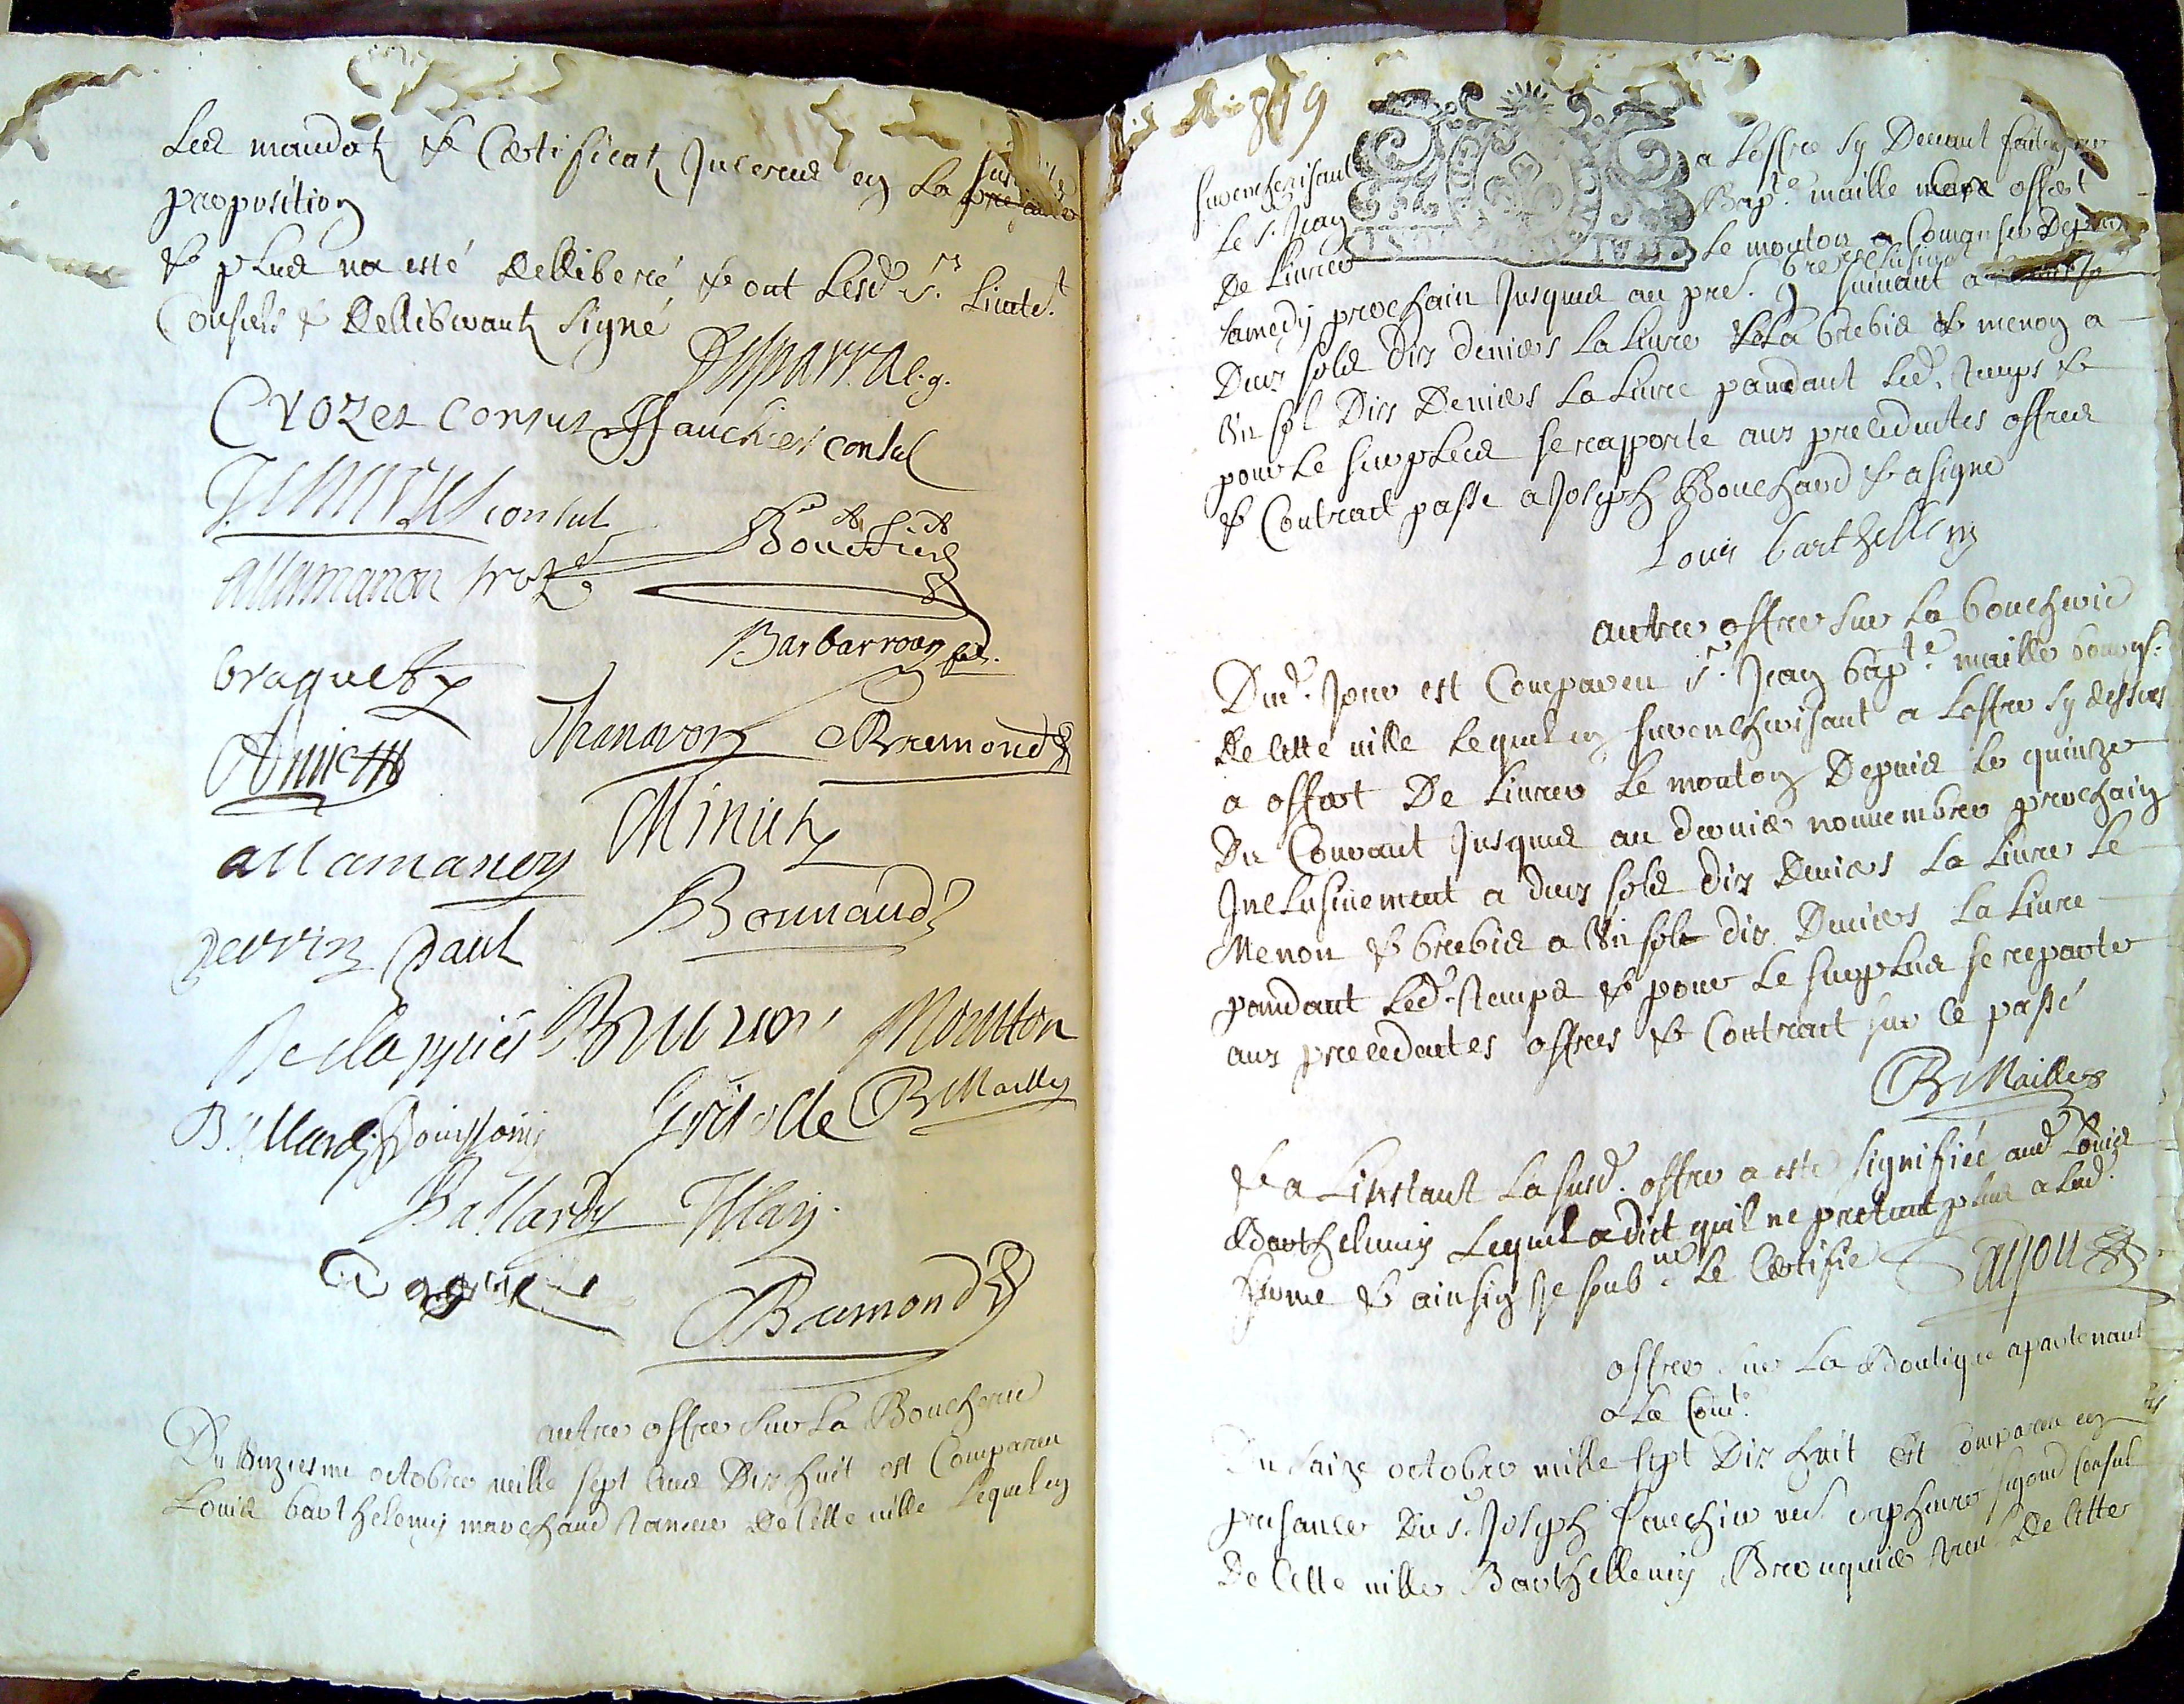 Les mandatz & Certificatz Inceres en la susd.
proposition
& plus na esté dellibéré & ont lesd. srs Lieutt.
Consuls & dellibérantz signé
Crozet consul ffauchier consul
consul
allamanon
braquety
Barbarroux
Thanaron Bremond
Amic
allamanon Minuty
perrin paul Bonnaud
Brunon Moutton
Ballardy Bouissonis Grisolle B Maille
Ballardy Illaij
Bremond
autre offre sur la Boucherie
Du unziesme octobre mille sept cens dix huit est Comparu
Louis barthelemy marchand taneur de cette ville lequel en
819
surencherissant a loffre sy devant faite par
le s. Jean Bapte. maille offert
de livrer le mouton a Comanser depuis
samedy prochain Jusques au pre. suivant a
deux sols dix deniers la livre & la brebis & menon a
un sol dix deniers la livre pandant led. temps &
pour le surplus se rapporte aux precedantes offres
& Contract passé a Joseph Bouchard & a signé
Louis barthellemy
autre offre sur la boucherie
Dud. jour est Compareu sr. Jean bapte. maille bourgs.
de cette ville lequel en surencherisant a loffre sy dessus
a offert de livrer le mouton depuis le quinze
du Courant Jusques au dernier novembre prochain
Inclusivement a deux sols dix deniers la livre le
Menon & brebis a un sol dix deniers la livre
pandant led. temps & pour le surplus se reporte
aux precedantes offres & Contract sur ce passé
B Maille
& a Linstant la susd. offre a esté signifiée aud. Louis
Barthelemy lequel a dict quil ne pretant plus a lad.
ferme & ainsin je soub.né le Certifie
offre sur la Boutique apartenant
a la Comté.
Du saize octobre mille sept dix huit est Comparu en
presance du s. Joseph fauchier me. orphevre segond Consul
de cette ville Barthellemy Brouquier de cette